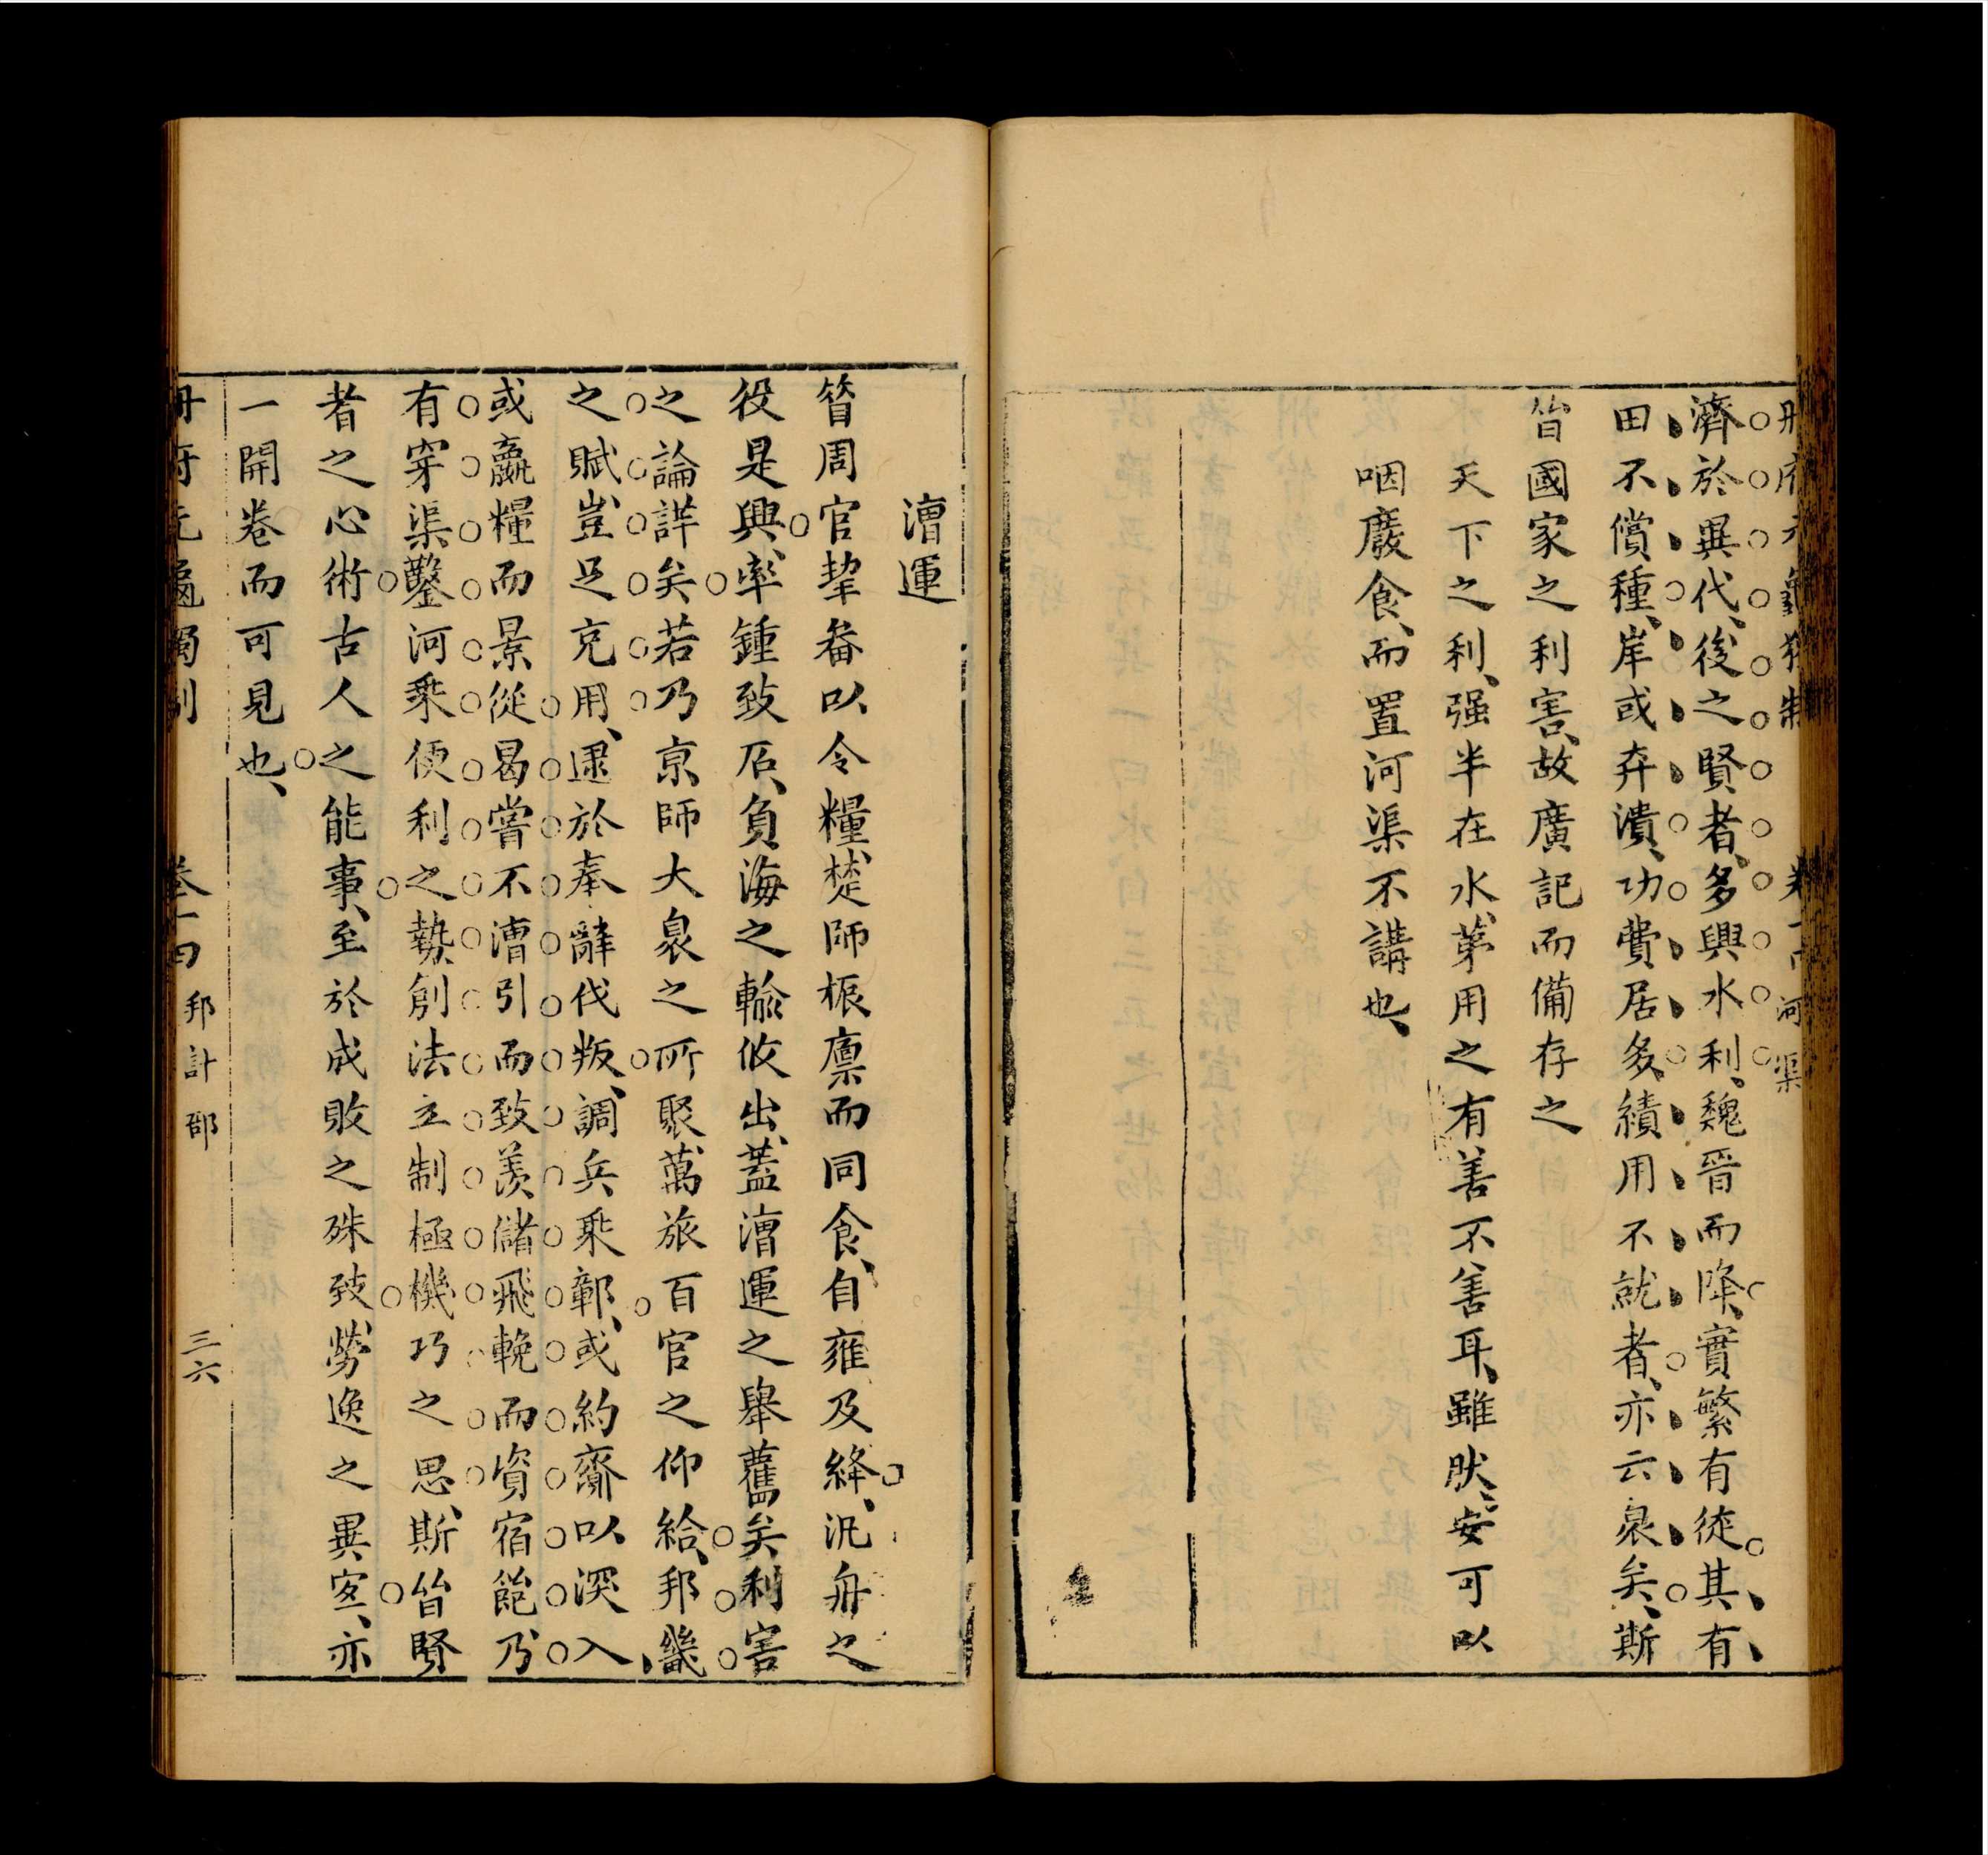 冊府元龜獨制 卷十四 河渠
濟於異代、後之賢者、多興水利、魏晉而降、實繁有徒、其有
田不償種、岸或弃潰、功費居多、績用不就者、亦云衆矣、斯
皆國家之利害、故廣記而備存之
天下之利、强半在水、第用之有善不善耳、雖肰、安可以
咽廢食、而置河渠不講也、
漕運
昔周官挈畚以令糧、楚師振廩而同食、自雍及絳、汎舟之
役是興、率鍾致石、負海之輸攸出、蓋漕運之舉舊矣、利害
之論詳矣、若乃京師大衆之所聚、萬旅百官之仰給、邦畿
之賦、豈足充用、逮於奉辭伐叛、調兵乘鄣、或約齎以深入
或贏糧而景從、曷嘗不漕引而致羨儲、飛輓而資宿飽、乃
有穿渠鑿河、乘便利之埶、創法立制、極機巧之思、斯皆賢
者之心術、古人之能事、至於成敗之殊致、勞逸之異宐、亦
一開卷而可見也、
冊府元龜獨制 卷十四 邦計部 三六